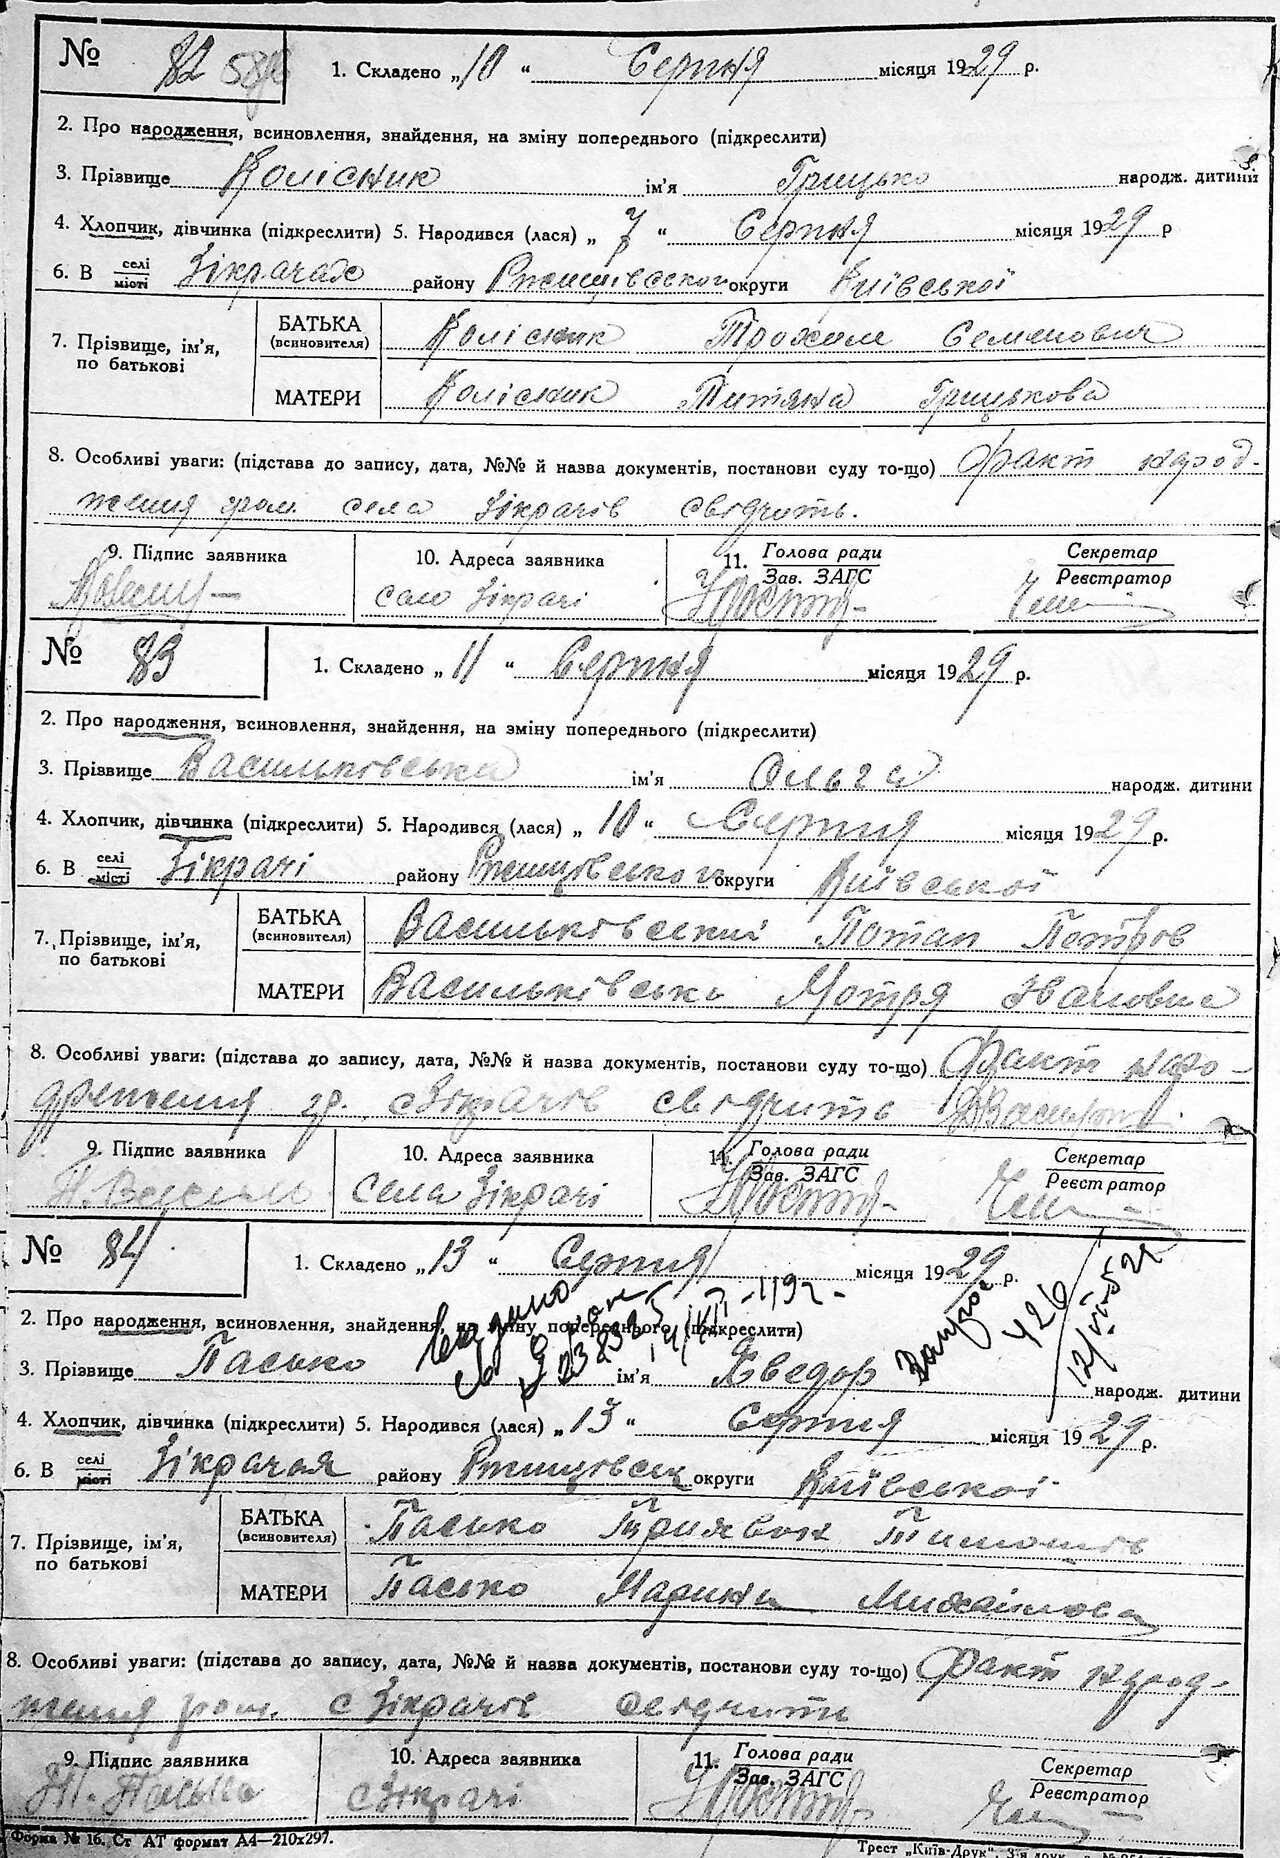 № 82
1. Складено „10“ Серпня місяця 1929 р.
2. Про народження, всиновлення, знайдення, на зміну попереднього (підкреслити)
3. Прізвище Колісник ім'я Грицько народж. дитини
4. Хлопчик, дівчинка (підкреслити) 5. Народився (лася) „7“ Серпня місяця 1929 р
6. В селі місті Зікрачах району Ржищівського округи Київської
7. Прізвище, ім'я, по батькові БАТЬКА (всиновителя) Колісник Трохим Семенович
МАТЕРИ Колісник Титяна Грицькова
8. Особливі уваги: (підстава до запису, дата, №№ й назва документів, постанови суду то-що) Факт народ-
ження гром. села Зікрачів свідчить.
9. Підпис заявника 10. Адреса заявника 11. Голова ради Зав. ЗАГС Секретар Реєстратор
село Зікрачі
№ 83
1. Складено „11“ Серпня місяця 1929 р.
2. Про народження, всиновлення, знайдення, на зміну попереднього (підкреслити)
3. Прізвище Васильківська ім'я Ольга народж. дитини
4. Хлопчик, дівчинка (підкреслити) 5. Народився (лася) „10“ Серпня місяця 1929 р.
6. В селі місті Зікрачі району Ржищівського округи Київської
7. Прізвище, ім'я, по батькові БАТЬКА (всиновителя) Васильківський Потап Петров
МАТЕРИ Васильківська Мотря Івановна
8. Особливі уваги: (підстава до запису, дата, №№ й назва документів, постанови суду то-що) Факт наро-
дження гр. с Зікрачів свідчить
9. Підпис заявника 10. Адреса заявника 11. Голова ради Зав. ЗАГС Секретар Реєстратор
села Зікрачі
№ 84
1. Складено „13“ Серпня місяця 1929 р.
2. Про народження, всиновлення, знайдення, на зміну попереднього (підкреслити)
3. Прізвище Пасько ім'я Хведор народж. дитини
4. Хлопчик, дівчинка (підкреслити) 5. Народився (лася) „13“ Серпня місяця 1929 р.
6. В селі місті Зікрачах району Ржищівськ округи Київської
7. Прізвище, ім'я, по батькові БАТЬКА (всиновителя) Пасько Трихвон Тимошів
МАТЕРИ Пасько Марина Михайлова
8. Особливі уваги: (підстава до запису, дата, №№ й назва документів, постанови суду то-що) Факт народ-
ження гром. с Зікрачів свідчить
9. Підпис заявника 10. Адреса заявника 11. Голова ради Зав. ЗАГС Секретар Реєстратор
Т. Пасько с Зікрачі
Форма № 16. Ст АТ формат А4—210х297.
Трест „Київ-Друк“.